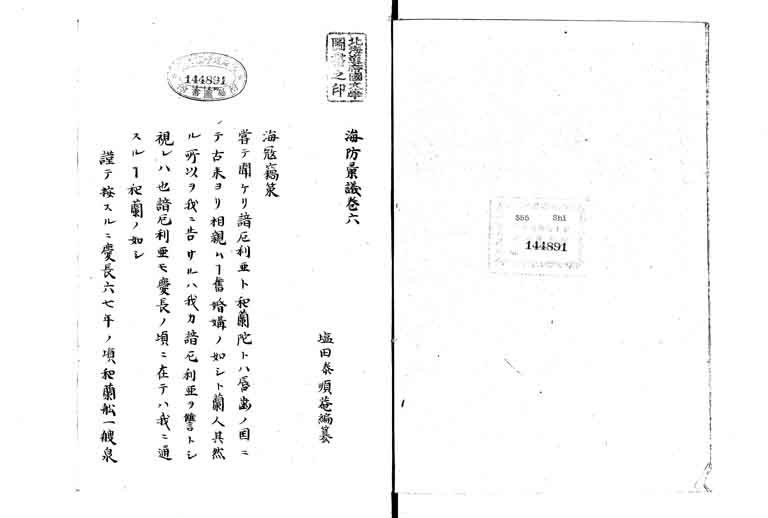 北海道帝國大學
圖書之印
海防彙議卷六
塩田泰順菴編纂
海寇竊策
嘗テ聞ケリ諳厄利亜ト和蘭陀トハ唇歯ノ国ニ
ノテ古来ヨリ相親ム﹁舊婚媾ノ如シト蘭人其然
ル所以ヲ我ニ告サルハ我カ諳厄利亜ヲ讐トシ
視レハ也諳厄利亜モ慶長ノ頃ニ在テハ我ニ通
スル﹁和蘭ノ如シ
謹テ按スルニ慶長六七年ノ頃和蘭舩一艘泉
144891
555 Shi
144891